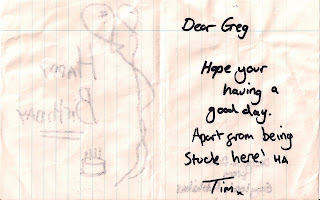 Happy
Birthday
Dear Greg
Hope your
having a
good day.
Apart from being
Stuck here! HA
Tim x